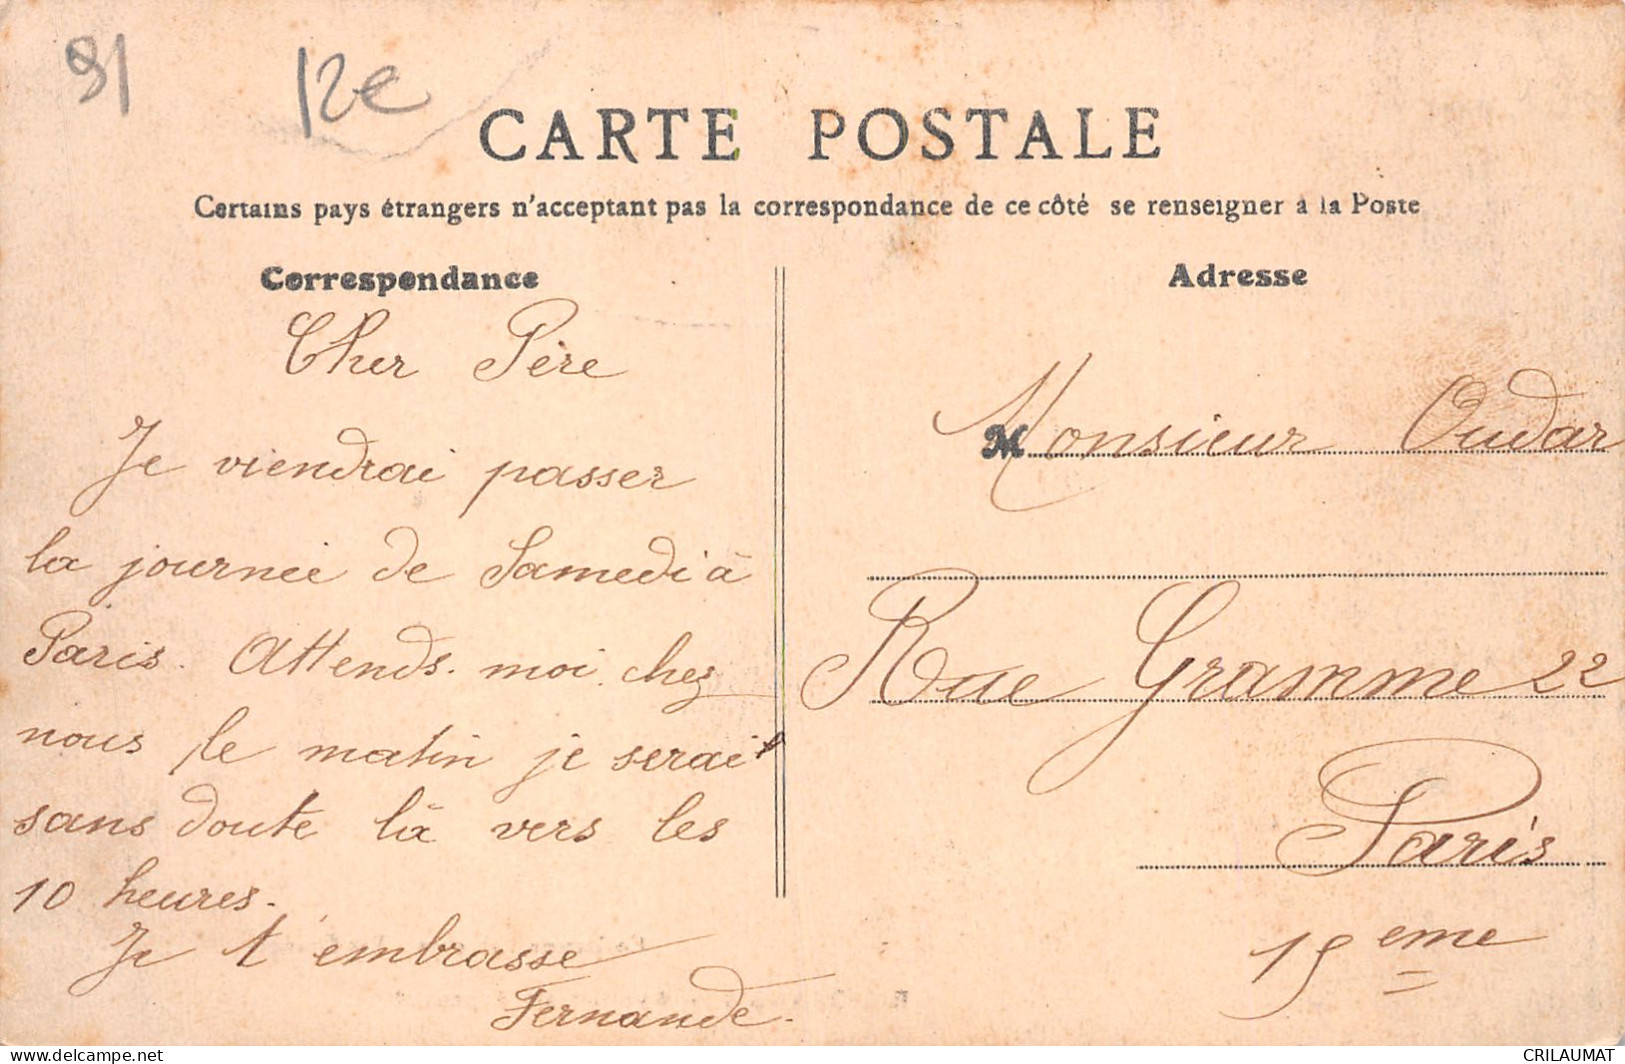 91
12€
CARTE POSTALE
Certains pays étrangers n'acceptant pas la correspondance de ce côté se renseigner à la Poste
Correspondance
Cher Père
Je viendrai passer
la journée de Samedi à
Paris. Attends-moi chez
nous le matin je serai
sans doute là vers les
10 heures.
Je t'embrasse
Fernande.
Adresse
Monsieur Oudar
Rue Gramme 22
Paris
15eme
delcampe.net
CRILAUMAT